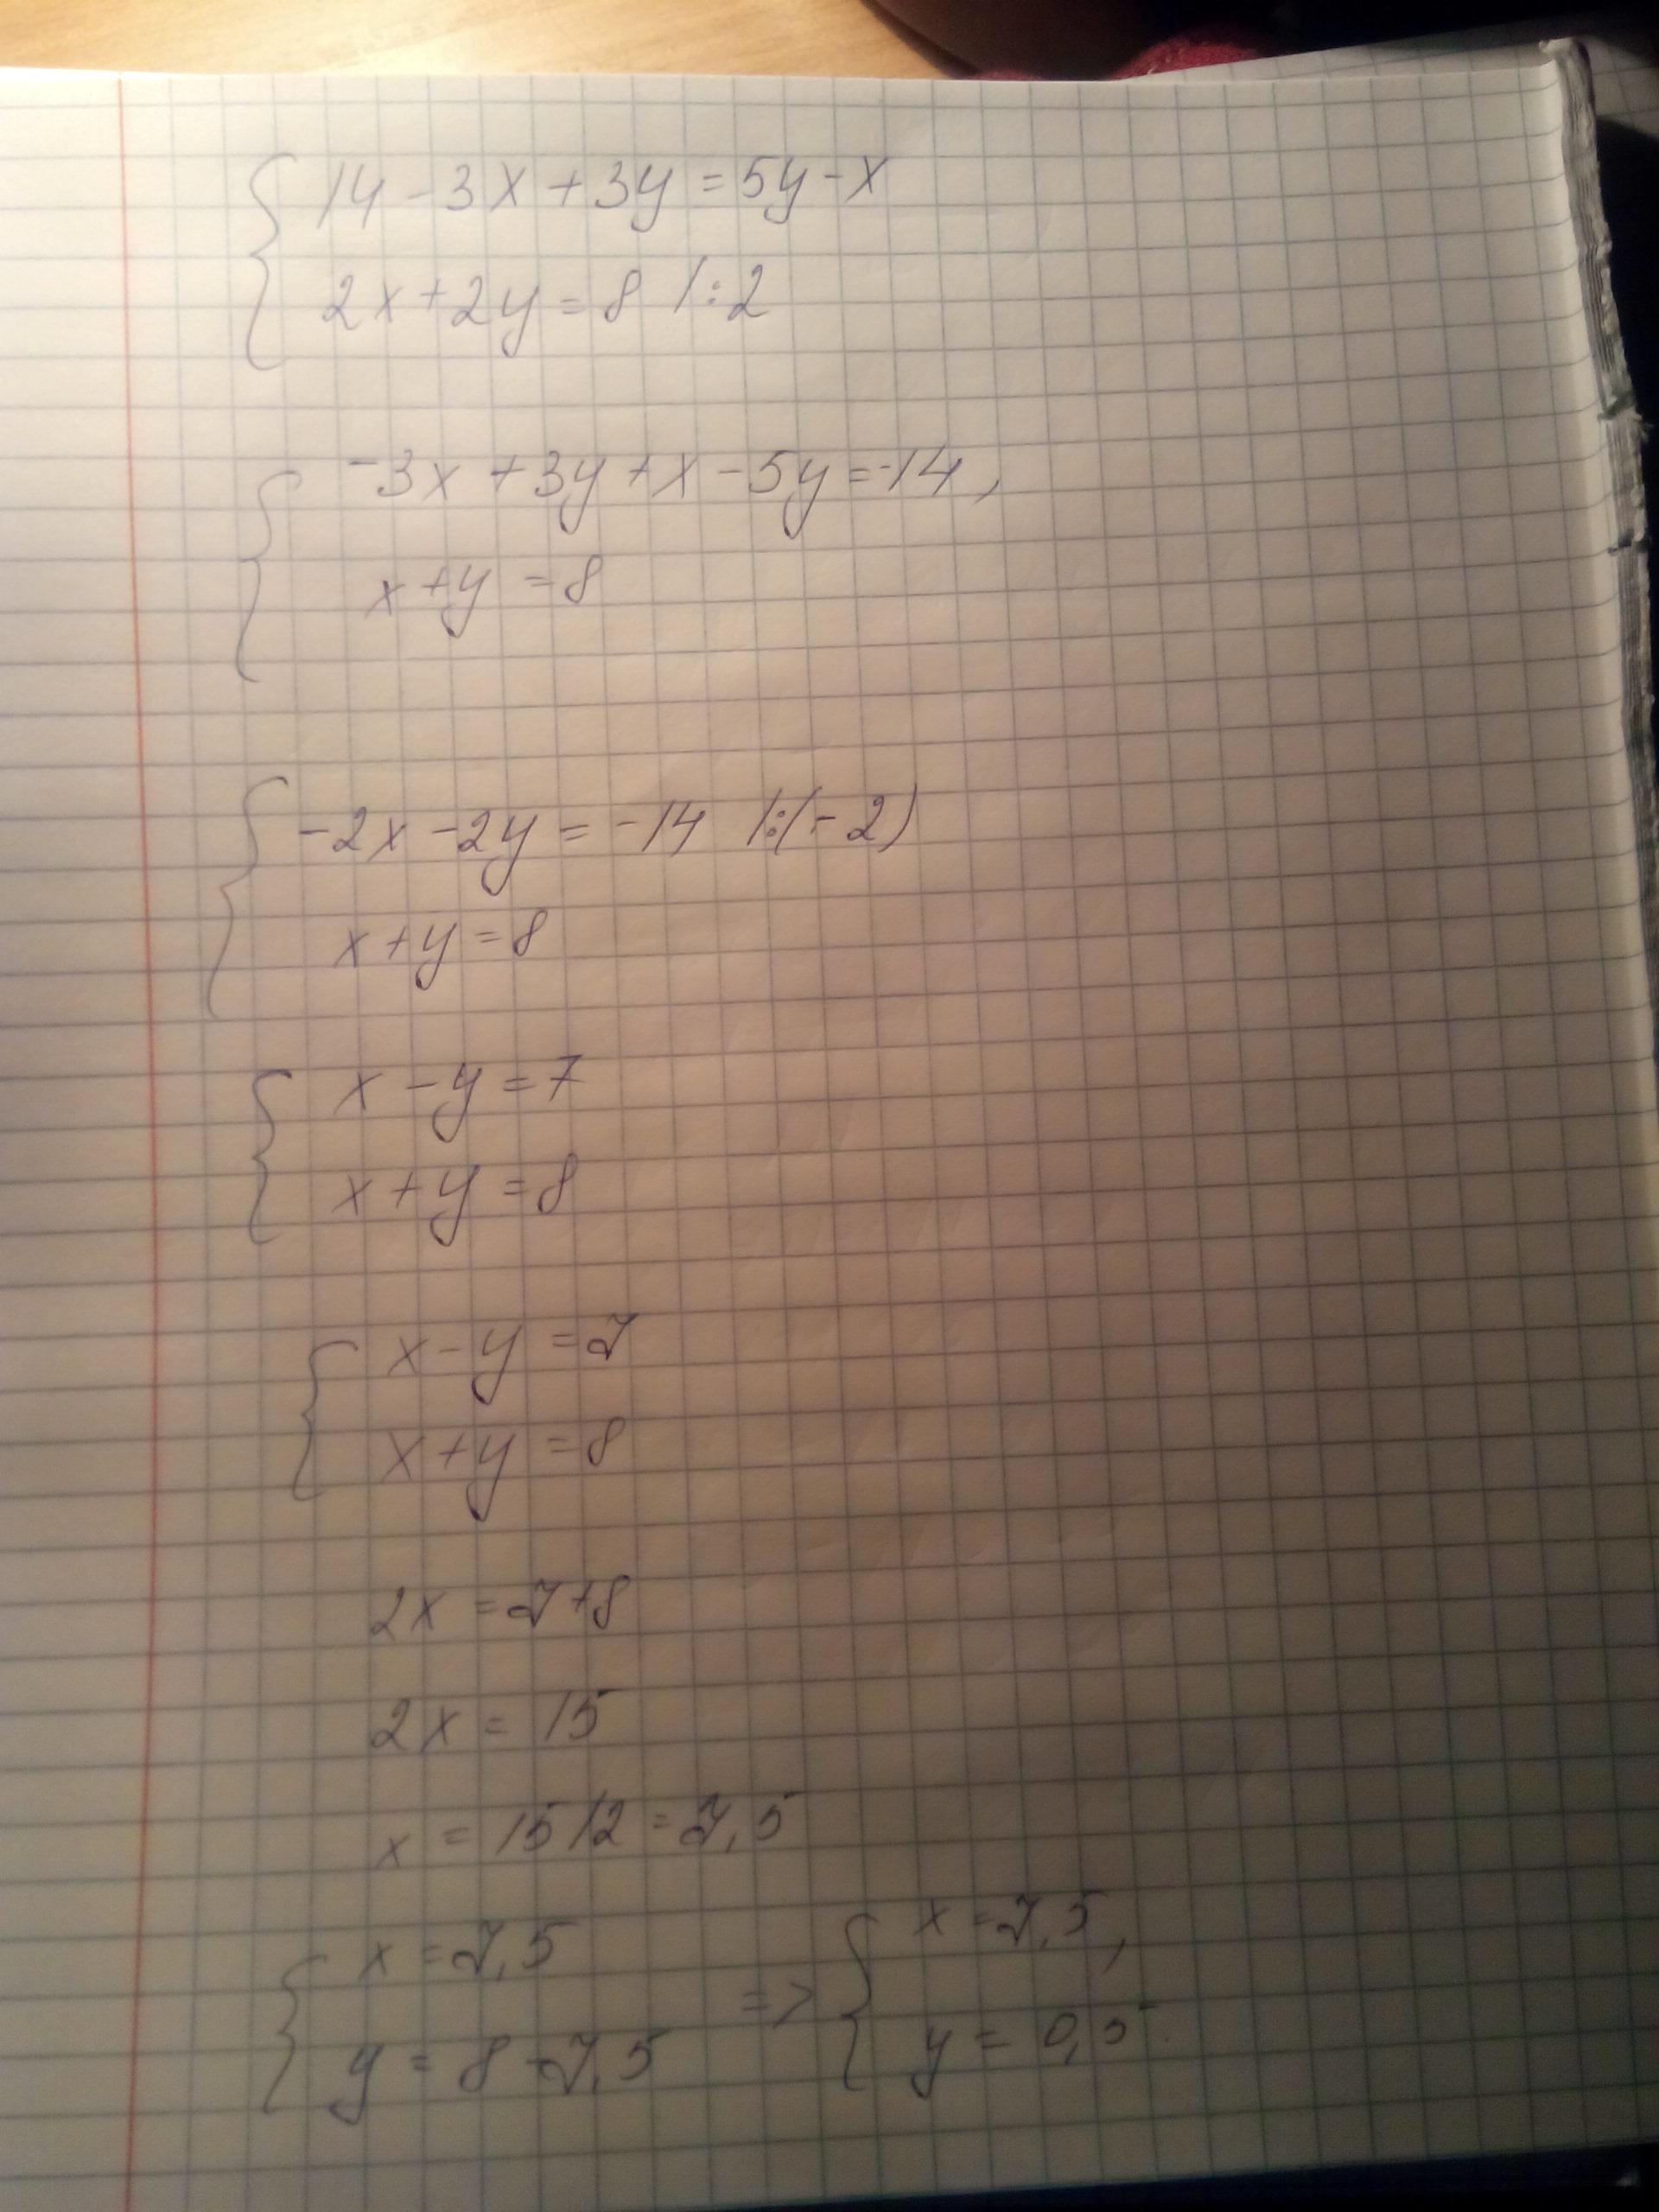 14 - 3x + 3y = 5y - x
2x + 2y = 8 /:2
-3x + 3y + x - 5y = -14,
x + y = 8
-2x - 2y = -14 /:(-2)
x + y = 8
x - y = 7
x + y = 8
x - y = 7
x + y = 8
2x = 7 + 8
2x = 15
x = 15/2 = 7,5
x = 7,5 => x = 7,5,
y = 8 - 7,5 y = 0,5